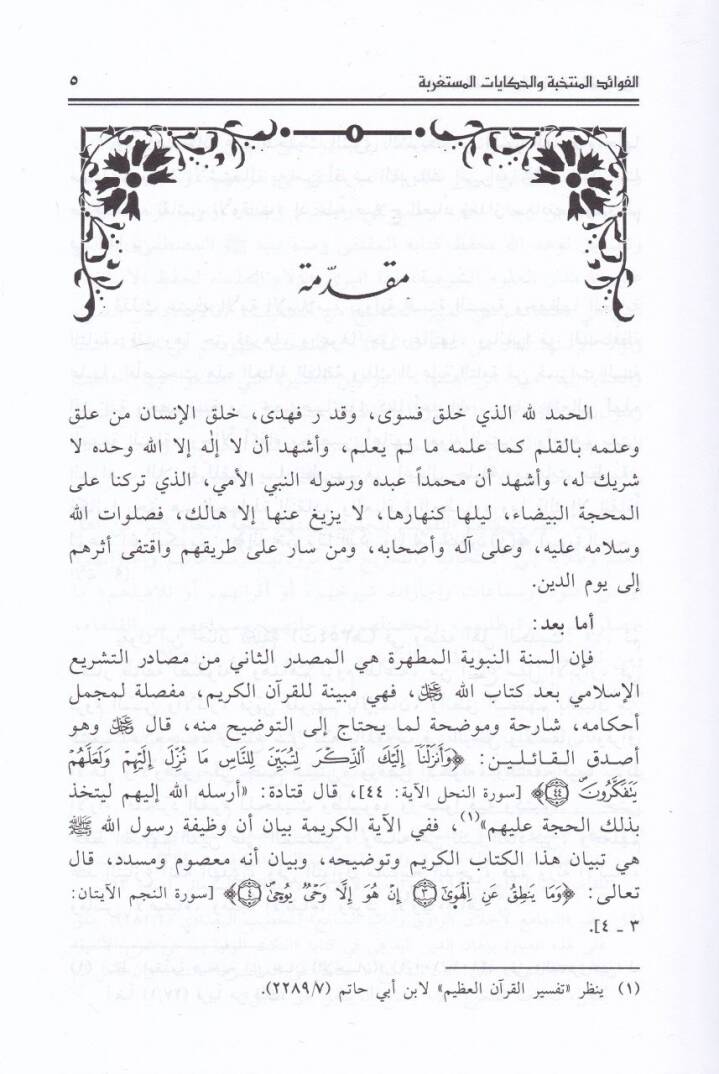 الفوائد المنتخبة والحكايات المستغربة ٥
مقدّمة
الحمد لله الذي خلق فسوى، وقدر فهدى، خلق الإنسان من علق
وعلمه بالقلم كما علمه ما لم يعلم، وأشهد أن لا إله إلا الله وحده لا
شريك له، وأشهد أن محمداً عبده ورسوله النبي الأمي، الذي تركنا على
المحجة البيضاء، ليلها كنهارها، لا يزيغ عنها إلا هالك، فصلوات الله
وسلامه عليه، وعلى آله وأصحابه، ومن سار على طريقهم واقتفى أثرهم
إلى يوم الدين.
أما بعد:
فإن السنة النبوية المطهرة هي المصدر الثاني من مصادر التشريع
الإسلامي بعد كتاب الله ﷿، فهي مبينة للقرآن الكريم، مفصلة لمجمل
أحكامه، شارحة وموضحة لما يحتاج إلى التوضيح منه، قال ﷿ وهو
أصدق القائلين: ﴿وَأَنزَلْنَا إِلَيْكَ الذِّكْرَ لِتُبَيِّنَ لِلنَّاسِ مَا نُزِّلَ إِلَيْهِمْ وَلَعَلَّهُمْ
يَتَفَكَّرُونَ ٤٤﴾ [سورة النحل الآية: ٤٤]، قال قتادة: «أرسله الله إليهم ليتخذ
بذلك الحجة عليهم»(١)، ففي الآية الكريمة بيان أن وظيفة رسول الله ﷺ
هي تبيان هذا الكتاب الكريم وتوضيحه، وبيان أنه معصوم ومسدد، قال
تعالى: ﴿وَمَا يَنطِقُ عَنِ الْهَوَىٰ ٣ إِنْ هُوَ إِلَّا وَحْيٌ يُوحَىٰ ٤﴾ [سورة النجم الآيتان:
٣ ـ ٤].
(١) ينظر «تفسير القرآن العظيم» لابن أبي حاتم (٢٢٨٩/٧).